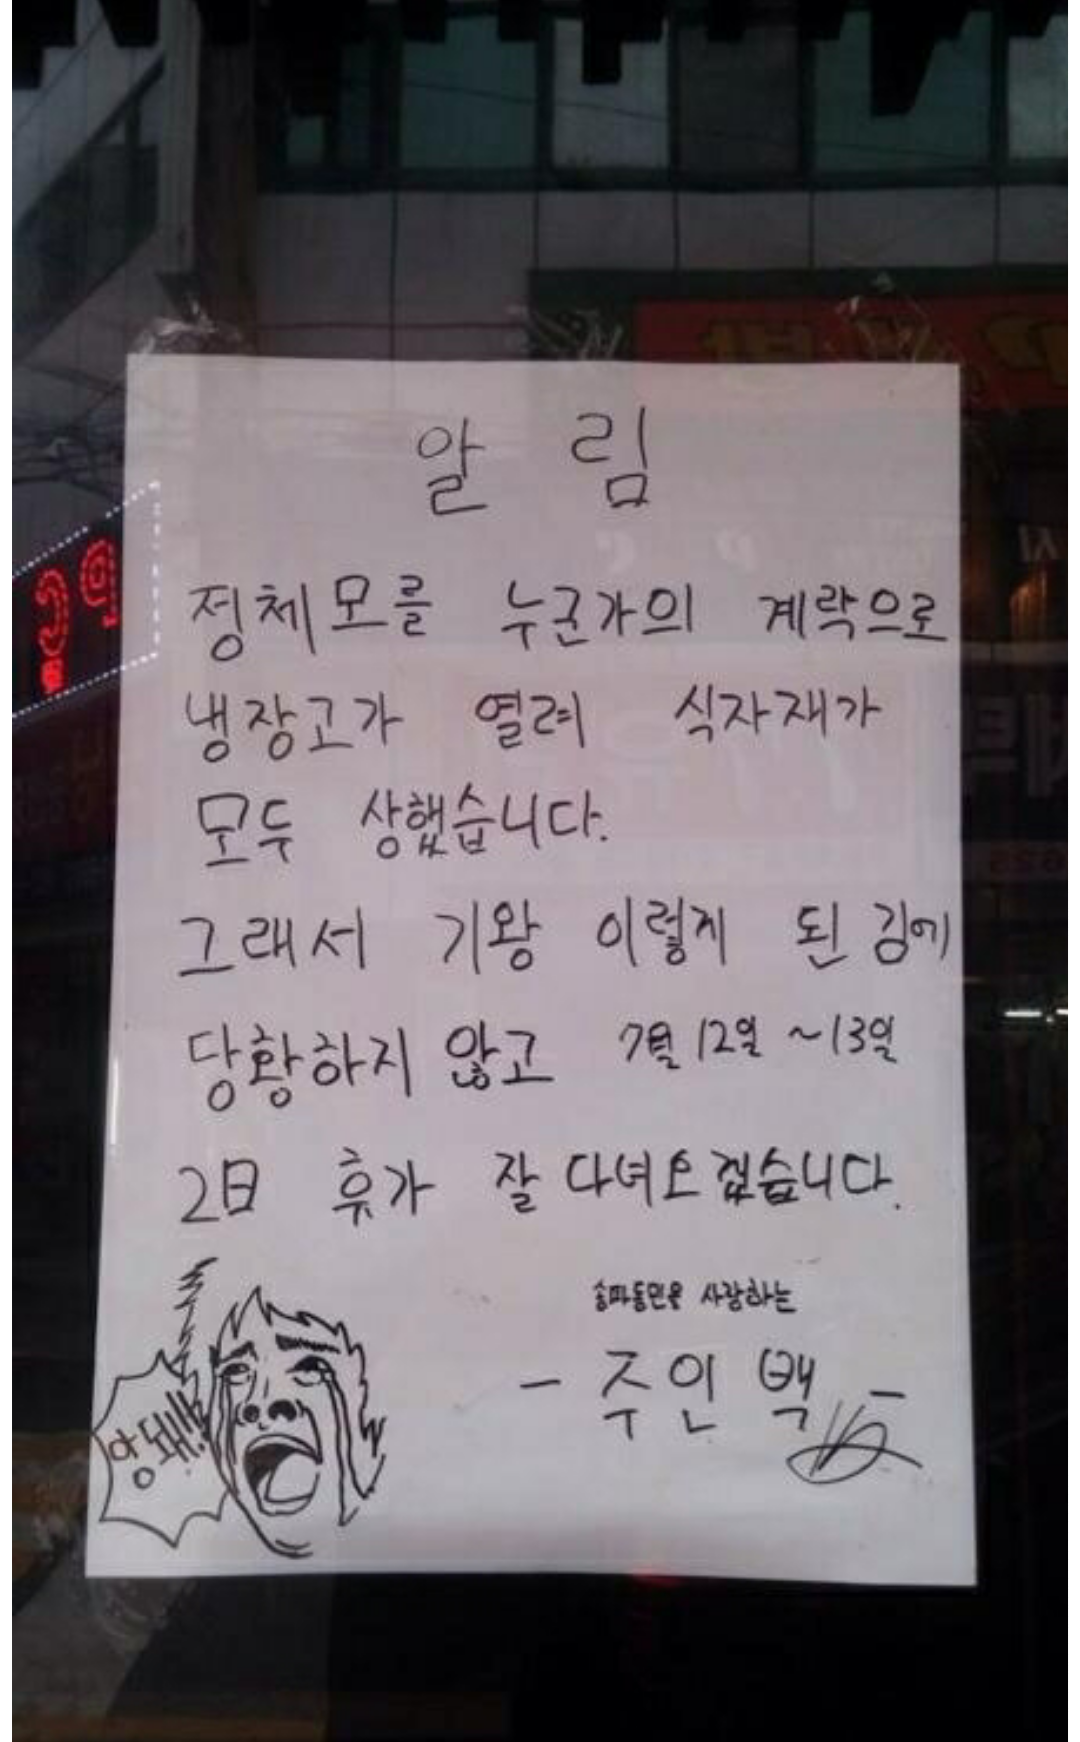 알 림
정체모를 누군가의 계략으로
냉장고가 열려 식자재가
모두 상했습니다.
그래서 기왕 이렇게 된 김에
당황하지 않고 7월 12일 ~13일
2日 휴가 잘 다녀오겠습니다.
송파동민을 사랑하는
- 주인 백 -
앙돼!!!